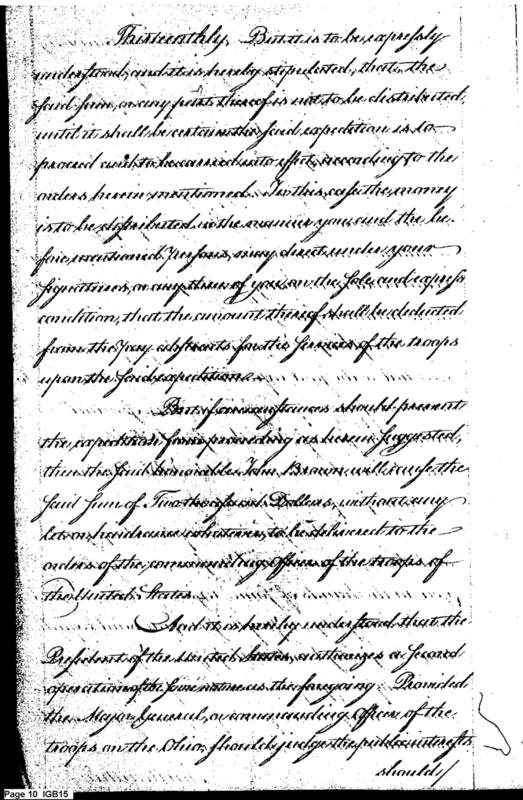 Thirteenthly, But it is to be expressly
understood, and it is hereby stipulated, that, the
said sum, or any part thereof is not to be distributed,
until it shall be certain the said expedition is to
proceed and to be carried into effect, according to the
orders herein mentioned. In this case the money
is to be distributed in the manner you, and the be-
fore mentioned persons, may direct under your
signatures, or any three of you, on the sole and express
condition, that the amount thereof shall be deducted
from the pay abstracts for the services of the troops
upon the said expedition.
But if circumstances should prevent
the expedition from proceeding as herein suggested,
then the said honorable John Brown will cause the
said sum of Two thousand Dollars, without any
let or hindrance whatever, to be delivered to the
orders of the commanding Officer of the troops of
the United States.
And it is hereby understood, that the
President of the United States, authorizes a second
operation of the same nature as the foregoing. Provided
the Major General, or commanding Officer of the
troops on the Ohio, should judge the public interests
should/
Page 10 IGB15